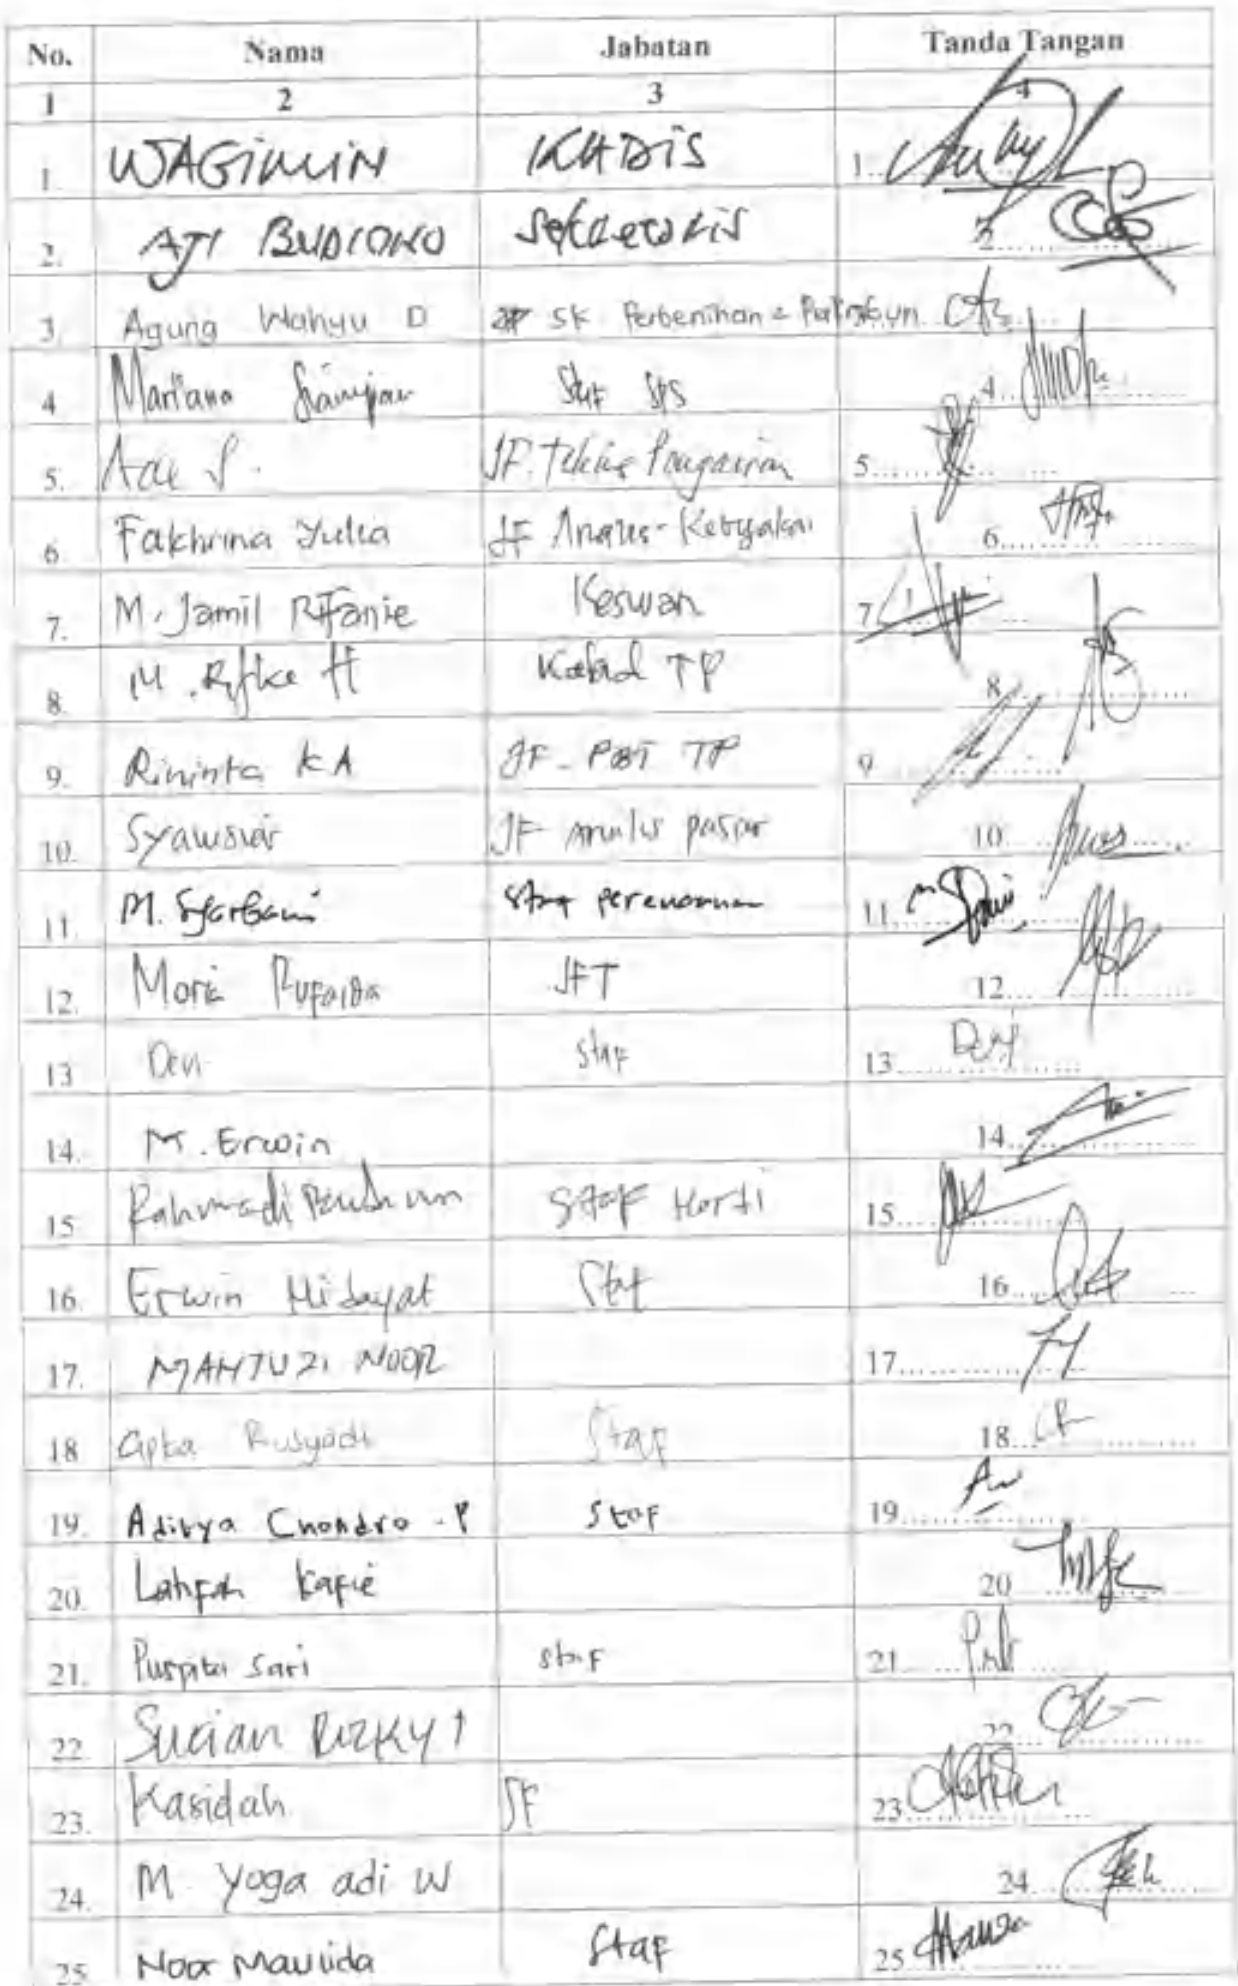 No. Nama Jabatan Tanda Tangan
1 2 3 4
1. WAGIMIN KADIS 1.
2. AJI BUDIONO Sekretaris 2.
3. Agung Wahyu D SK Perbenihan &
4. Mariana Staf 4.
5. JF. Teknis Pengairan 5.
6. Fakhrina Yulia JF Analis Kebijakan 6.
7. M. Jamil Rifanie Keswan 7
8. M. Rifke H Kabid TP 8
9. Rininta KA JF - PBT TP 9
10. JF analis pasar 10
11. M. Syarbani Staf perencanaan 11.
12. Rufaida JFT 12.
13 Devi Staf 13.
14. M. Erwin 14.
15 Rahmadi Staf Horti 15.
16. Erwin Hidayat Staf 16.
17. NOOR 17.
18 Cipta Rusyadi Staf 18.
19. Aditya Chondro . P Staf 19.
20. Kafie 20
21. Puspita Sari staf 21.
22. RIZKY 22.
23. Kasidah JF 23
24. M. Yoga adi W 24.
25 Noor Maulida Staf 25